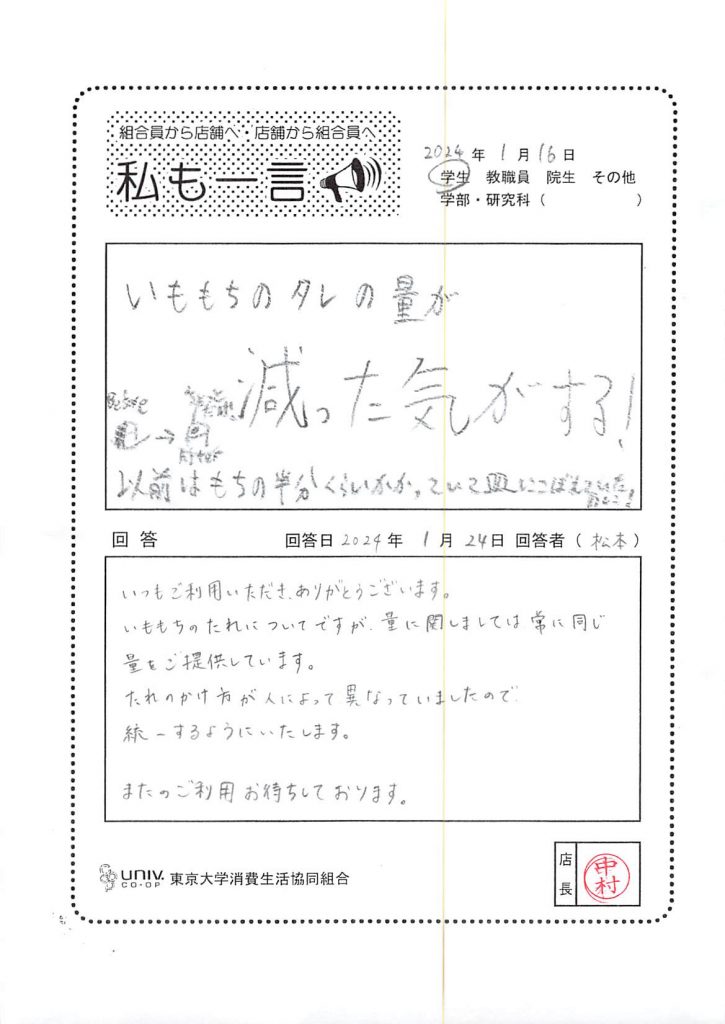 組合員から店舗へ・店舗から組合員へ
私も一言
2024年1月16日
学生 教職員 院生 その他
学部・研究科( )
いももちのタレの量が
減った気がする!
Before
→
After
以前はもちの半分くらいかかっていて皿にこぼえていた
回答 回答日2024年1月24日 回答者(松本)
いつもご利用いただき、ありがとうございます。
いももちのたれについてですが、量に関しましては常に同じ
量をご提供しています。
たれのかけ方が人によって異なっていましたので、
統一するようにいたします。
またのご利用お待ちしております。
UNIV. CO-OP 東京大学消費生活協同組合
店長 中村